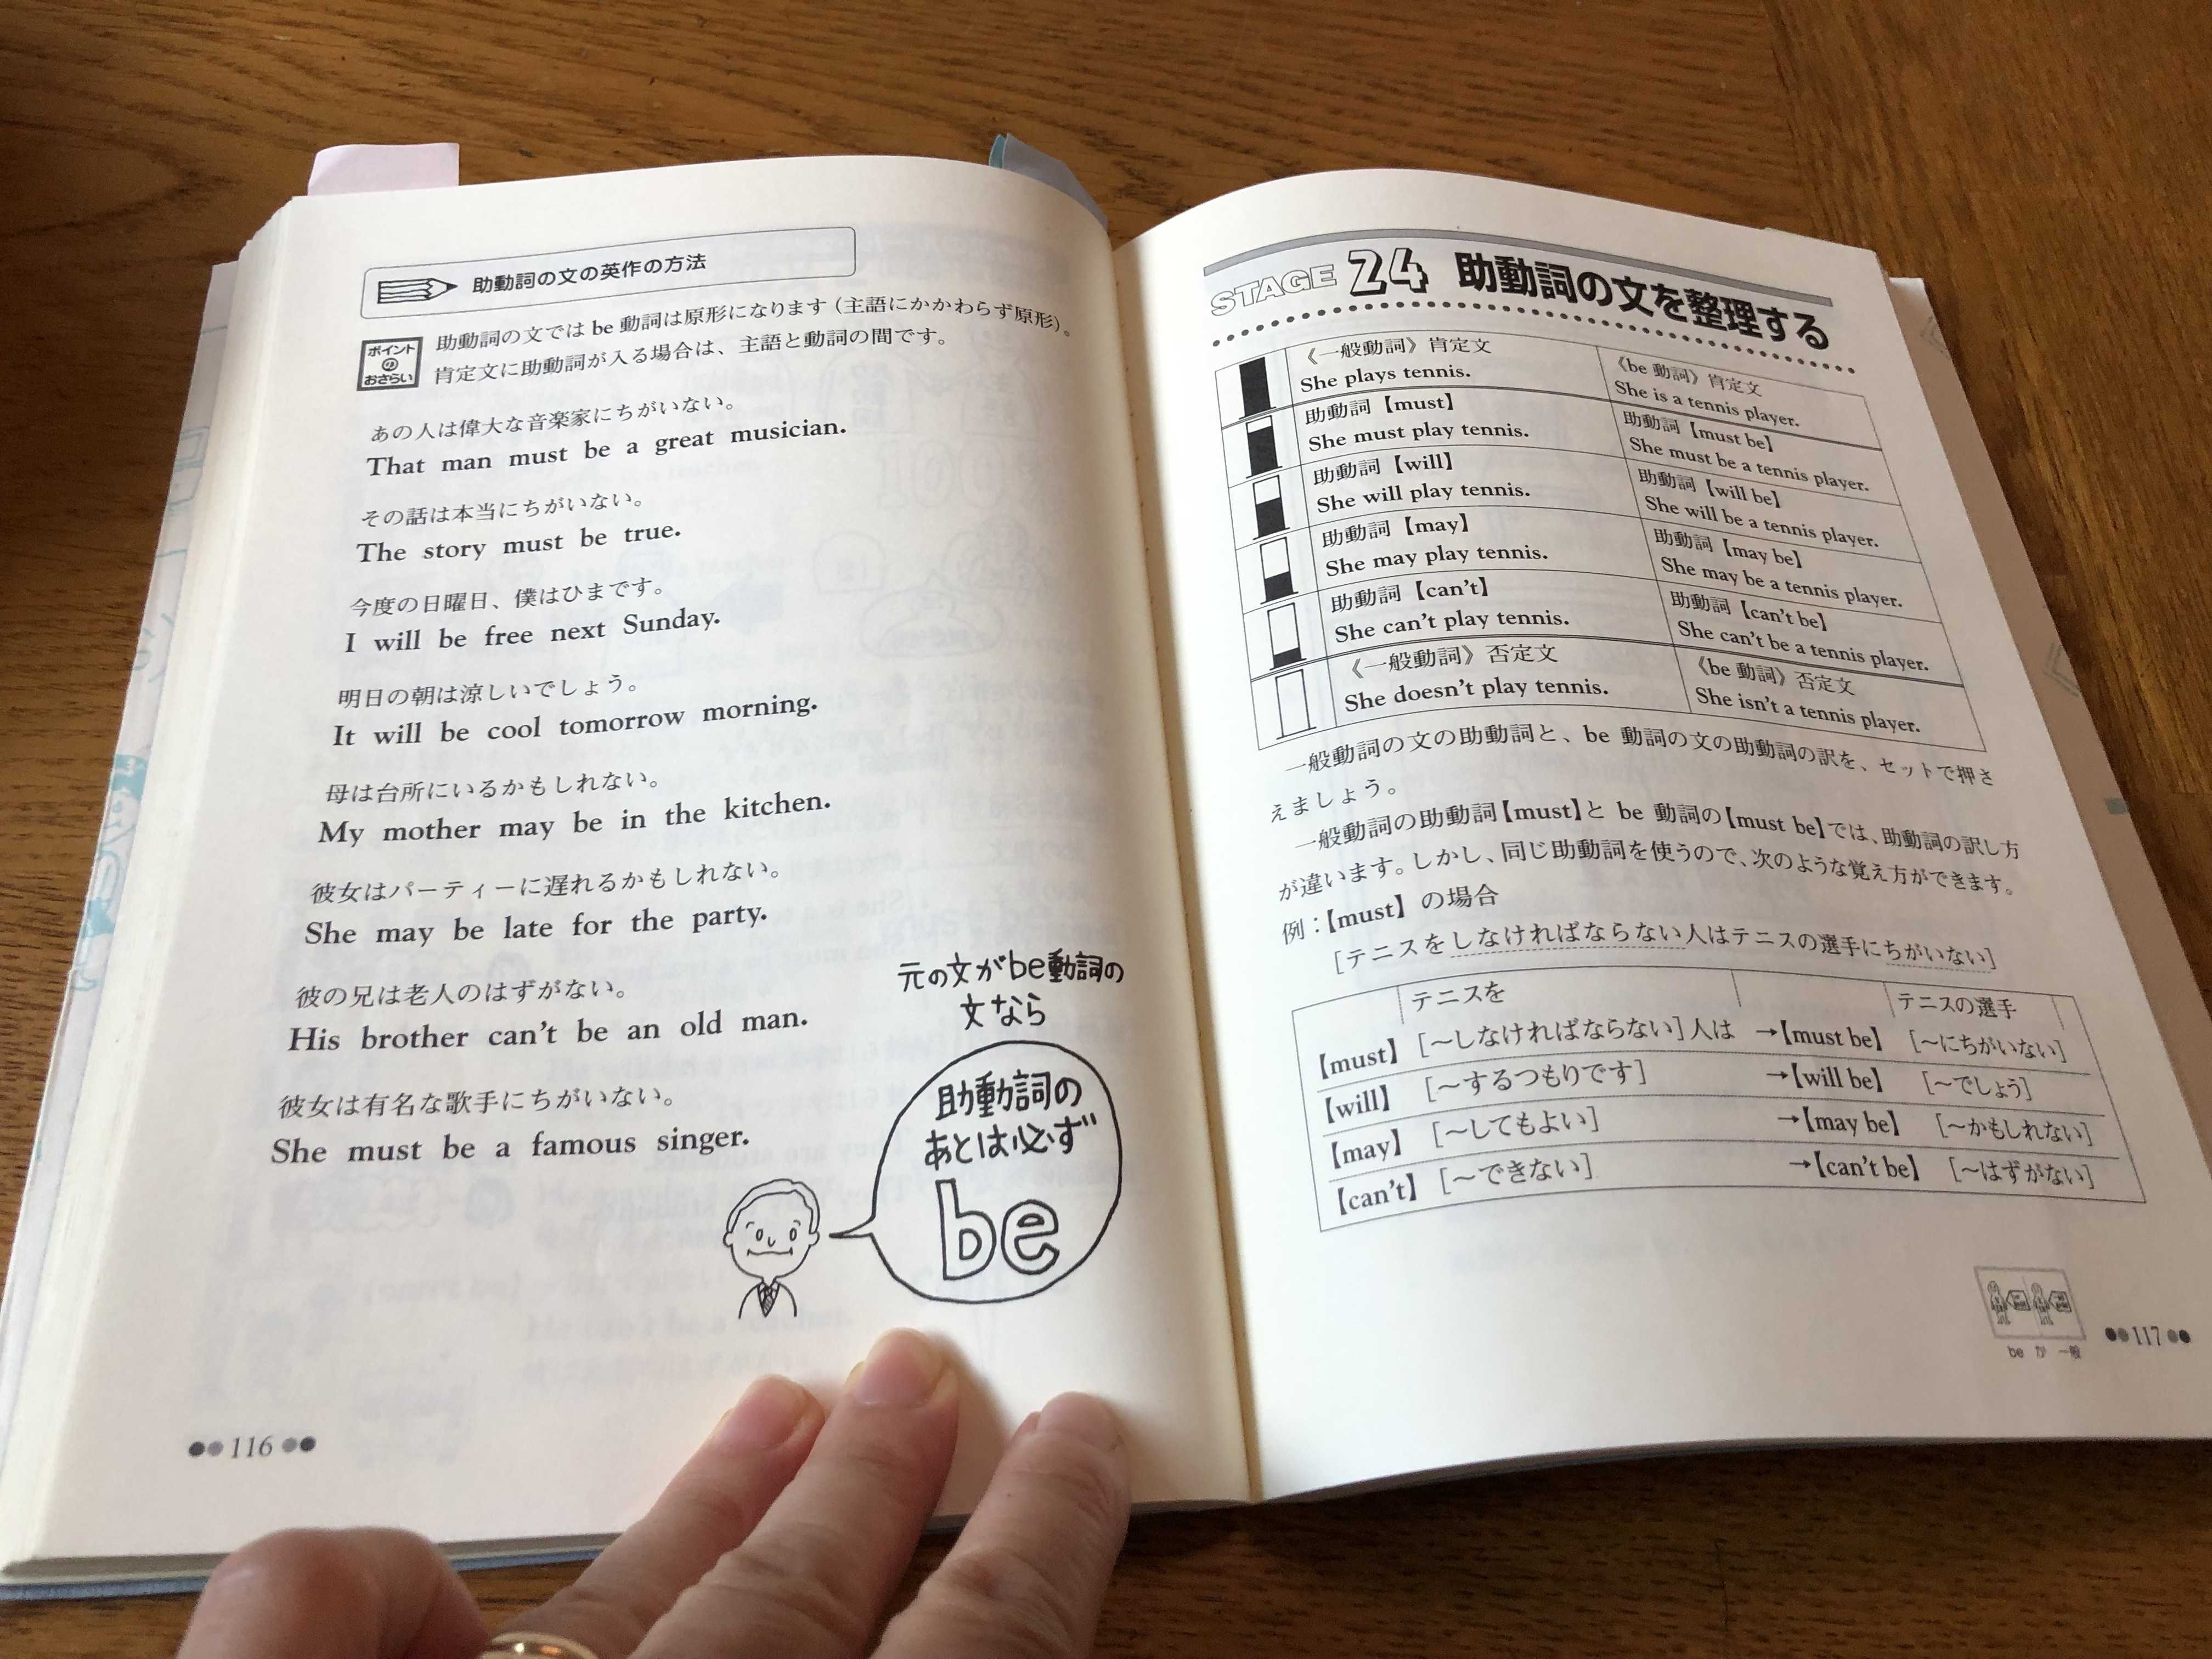 助動詞の文の英作の方法
ポイント
の
おさらい
助動詞の文では be 動詞は原形になります（主語にかかわらず原形）。
肯定文に助動詞が入る場合は、主語と動詞の間です。
あの人は偉大な音楽家にちがいない。
That man must be a great musician.
その話は本当にちがいない。
The story must be true.
今度の日曜日、僕はひまです。
I will be free next Sunday.
明日の朝は涼しいでしょう。
It will be cool tomorrow morning.
母は台所にいるかもしれない。
My mother may be in the kitchen.
彼女はパーティーに遅れるかもしれない。
She may be late for the party.
彼の兄は老人のはずがない。
His brother can't be an old man.
彼女は有名な歌手にちがいない。
She must be a famous singer.
元の文がbe動詞の
文なら
助動詞の
あとは必ず
be
116
STAGE 24 助動詞の文を整理する
《一般動詞》肯定文
She plays tennis.
《be 動詞》肯定文
She is a tennis player.
助動詞【must】
She must play tennis.
助動詞【must be】
She must be a tennis player.
助動詞【will】
She will play tennis.
助動詞【will be】
She will be a tennis player.
助動詞【may】
She may play tennis.
助動詞【may be】
She may be a tennis player.
助動詞【can't】
She can't play tennis.
助動詞【can't be】
She can't be a tennis player.
《一般動詞》否定文
She doesn't play tennis.
《be 動詞》否定文
She isn't a tennis player.
一般動詞の文の助動詞と、be 動詞の文の助動詞の訳を、セットで押さ
えましょう。
一般動詞の助動詞【must】と be 動詞の【must be】では、助動詞の訳し方
が違います。しかし、同じ助動詞を使うので、次のような覚え方ができます。
例：【must】の場合
［テニスをしなければならない人はテニスの選手にちがいない］
テニスを テニスの選手
【must】［～しなければならない］人は →【must be】［～にちがいない］
【will】［～するつもりです］ →【will be】［～でしょう］
【may】［～してもよい］ →【may be】［～かもしれない］
【can't】［～できない］ →【can't be】［～はずがない］
be か 一般
117